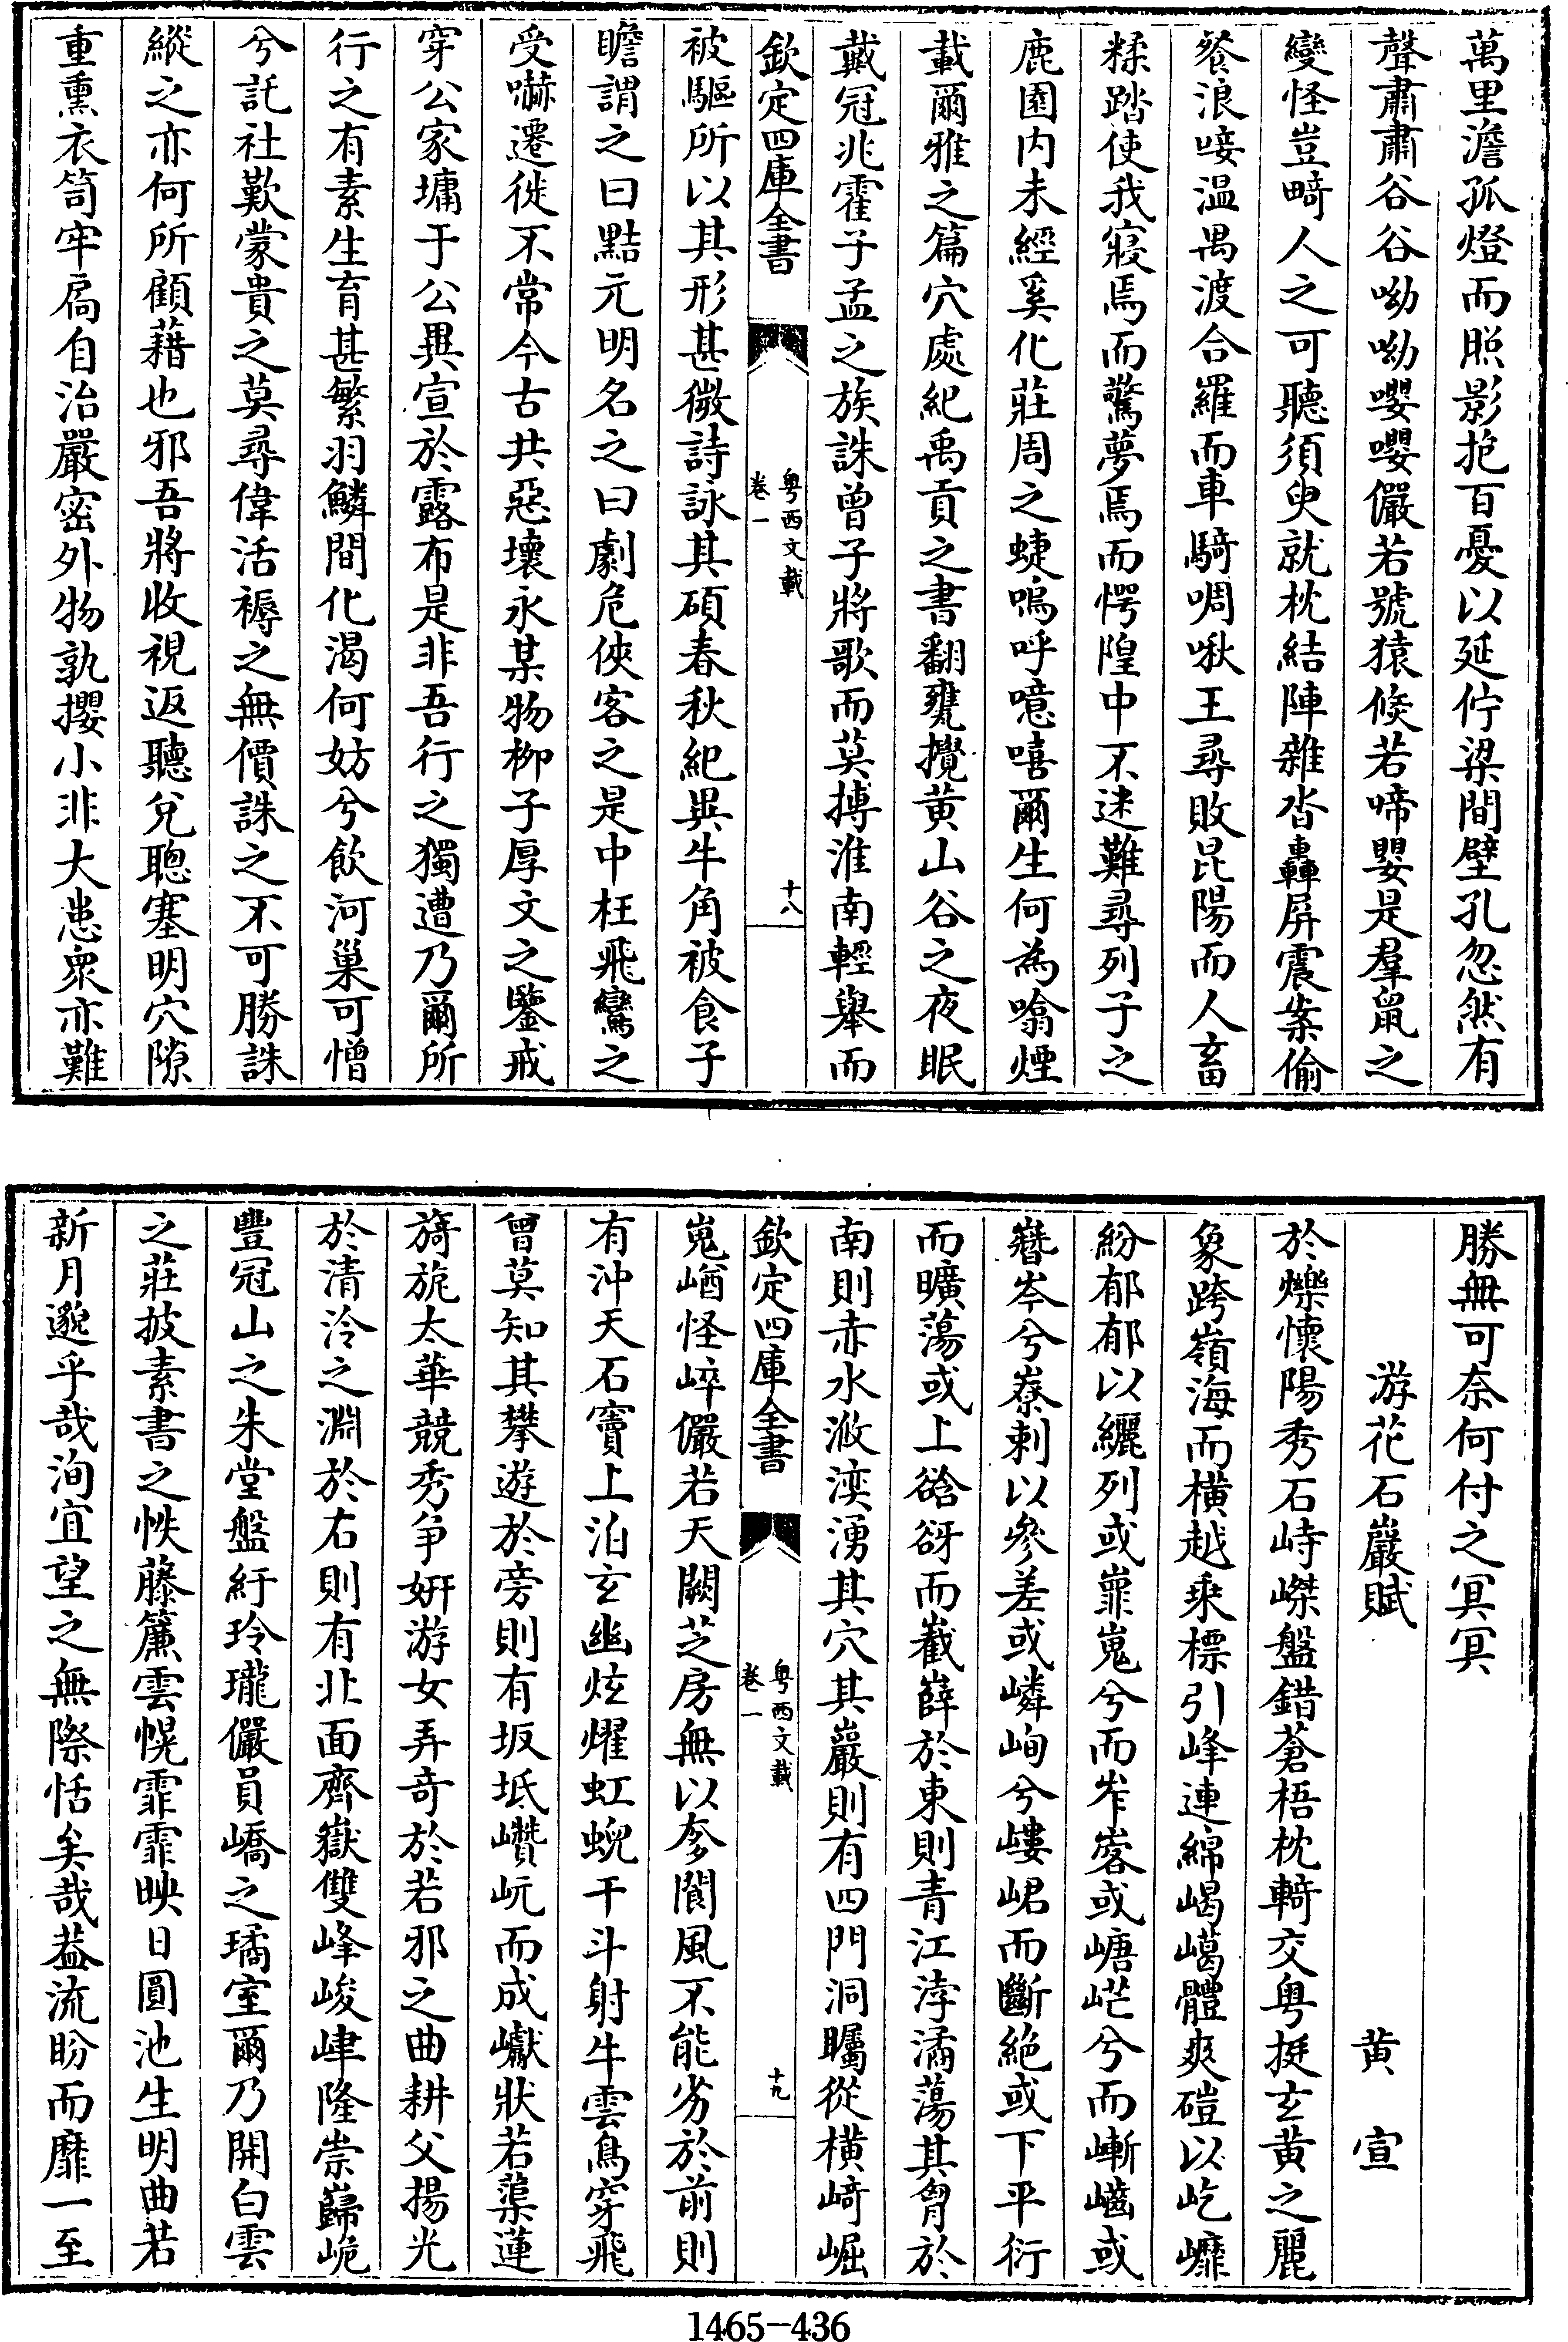 萬里澹孤燈而照影抱百憂以延佇梁間壁孔忽然有
聲肅肅谷谷呦呦嚶嚶儼若號猿倏若啼嬰是羣鼠之
變怪豈畸人之可聽須臾就枕結陣雜沓轟屏震案偷
餐浪唼温禺渡合羅而車騎啁啾王尋敗昆陽而人畜
糅踏使我寢焉而驚夢焉而愕隍中不迷難尋列子之
鹿園内未經奚化莊周之蜨嗚呼噫嘻爾生何為噏煙
載爾雅之篇穴處紀禹貢之書翻甕攪黄山谷之夜眠
戴冠兆霍子孟之族誅曾子將歌而莫搏淮南輕舉而
欽定四庫全書
粤西文載
卷一
十八
被驅所以其形甚微詩詠其碩春秋紀異牛角被食子
瞻謂之曰點元明名之曰劇危俠客之是中枉飛鸞之
受嚇遷徙不常今古共惡壞永某物柳子厚文之鑒戒
穿公家墉于公異宣於露布是非吾行之獨遭乃爾所
行之有素生育甚繁羽鱗間化渴何妨兮飲河巢可憎
兮託社歎蒙貴之莫尋偉活褥之無價誅之不可勝誅
縱之亦何所顧藉也邪吾將收視返聽兌聰塞明穴隙
重熏衣笥牢扃自治嚴密外物孰攖小非大患衆亦難
勝無可奈何付之冥冥
游花石巖賦
黄宣
於爍懷陽秀石峙嵥盤錯蒼梧枕輢交粤挺玄黄之麗
象跨嶺海而横越乘標引峰連綿嵑嶱體爽磑以屹㠢
紛郁郁以纚列或嶵嵬兮而岝峉或嵣㟐兮而嶄㠔或
嶜岑兮嶚剌以參差或嶙峋兮嶁峮而斷絶或下平衍
而曠蕩或上谽谺而巀嶭於東則青江浡潏蕩其胷於
南則赤水滺湙湧其穴其巖則有四門洞矚從横崎崛
欽定四庫全書
粤西文載
卷一
十九
嵬崷怪崪儼若天闕芝房無以奓閬風不能劣於前則
有沖天石竇上泊玄幽炫燿虹蜺干斗射牛雲鳥穿飛
曾莫知其攀遊於旁則有坂坻巑岏而成巘狀若蕖蓮
旖旎太華競秀争妍游女弄奇於若邪之曲耕父揚光
於清泠之淵於右則有北面齊嶽雙峰峻嵂隆崇巋峗
豐冠山之朱堂盤紆玲瓏儼員嶠之璚室爾乃開白雲
之莊披素書之帙藤簾雲幌霏霏映日圓池生明曲若
新月邈乎哉洵宜望之無際恬矣哉葢流盼而靡一至
1465-436